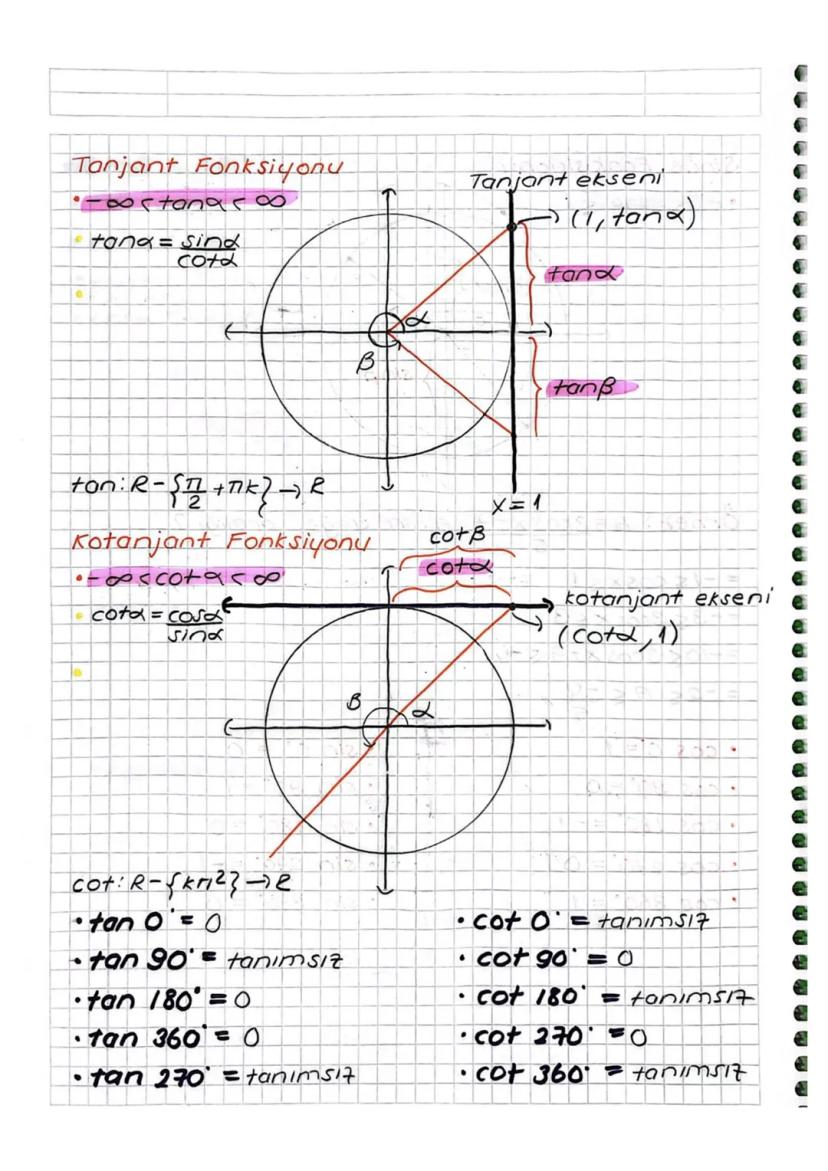 Tanjant Fonksiyonu
Tanjant ekseni
• -∞ < tanα < ∞
(1, tanα)
• tanα = sinα / cotα
tanα
α
β
tanβ
tan: R - {π/2 + πk} → R
x = 1
Kotanjant Fonksiyonu
cotβ
cotα
• -∞ < cot α < ∞
kotanjant ekseni
• cotα = cosα / sinα
(cotα, 1)
β
α
cot: R - {kπ²} → R
• tan 0° = 0
• tan 90° = tanımsız
• tan 180° = 0
• tan 360° = 0
• tan 270° = tanımsız
• cot 0° = tanımsız
• cot 90° = 0
• cot 180° = tanımsız
• cot 270° = 0
• cot 360° = tanımsız